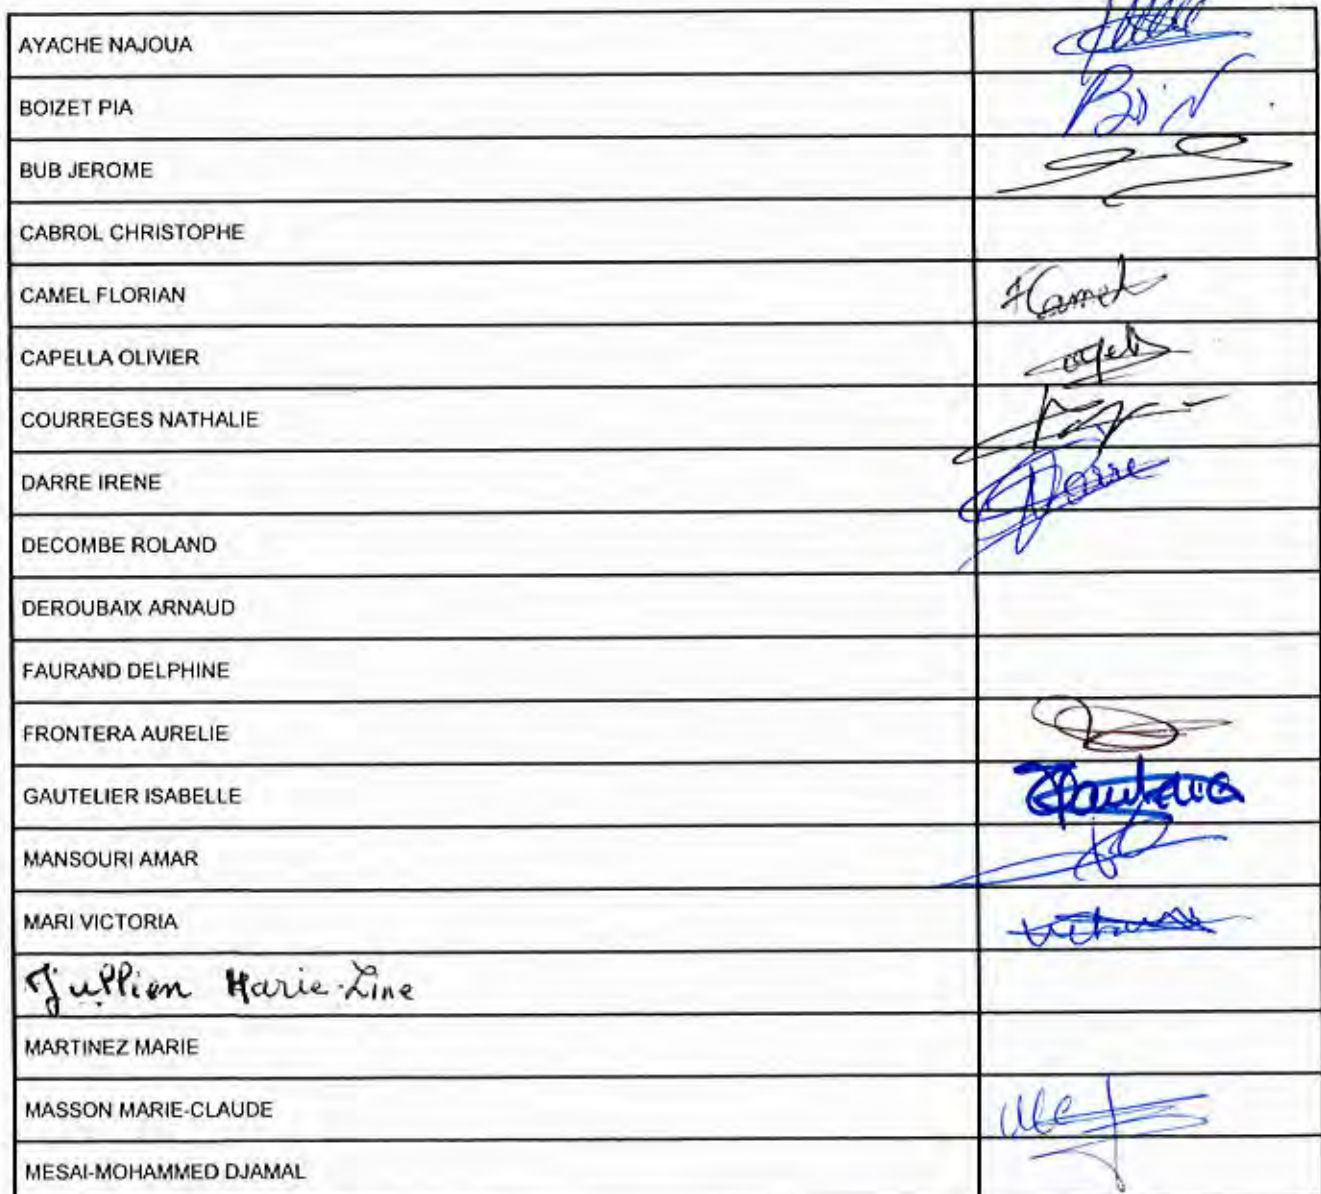 AYACHE NAJOUA
BOIZET PIA
BUB JEROME
CABROL CHRISTOPHE
CAMEL FLORIAN
FCamel
CAPELLA OLIVIER
COURREGES NATHALIE
DARRE IRENE
Darre
DECOMBE ROLAND
DEROUBAIX ARNAUD
FAURAND DELPHINE
FRONTERA AURELIE
GAUTELIER ISABELLE
MANSOURI AMAR
MARI VICTORIA
Jullien Marie-Line
MARTINEZ MARIE
MASSON MARIE-CLAUDE
MESAI-MOHAMMED DJAMAL